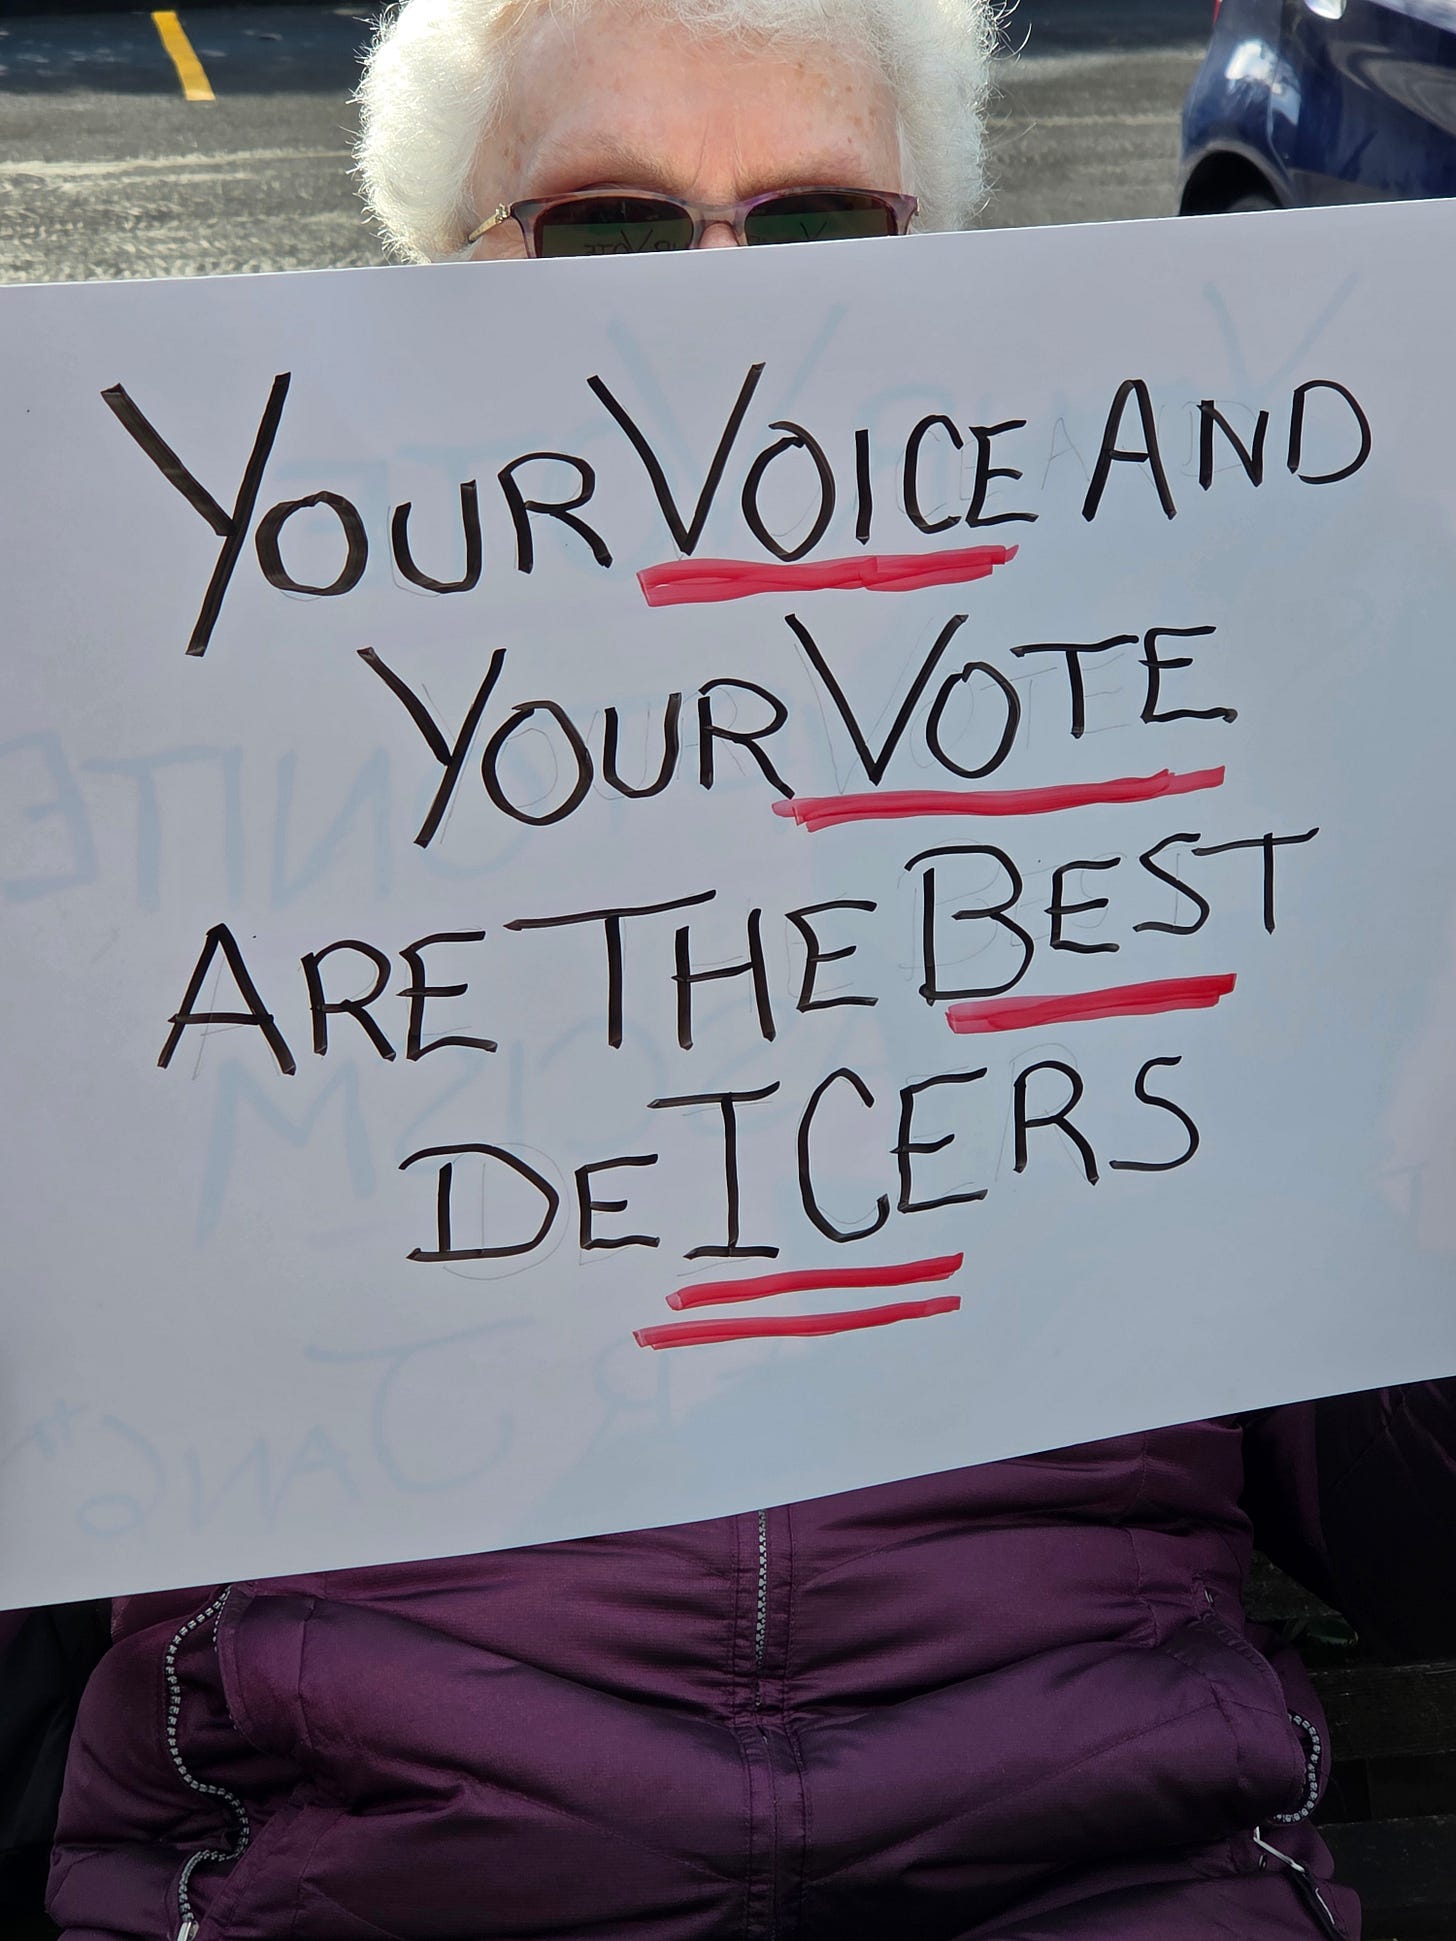 YOUR VOICE AND
YOUR VOTE
ARE THE BEST
DEICERS